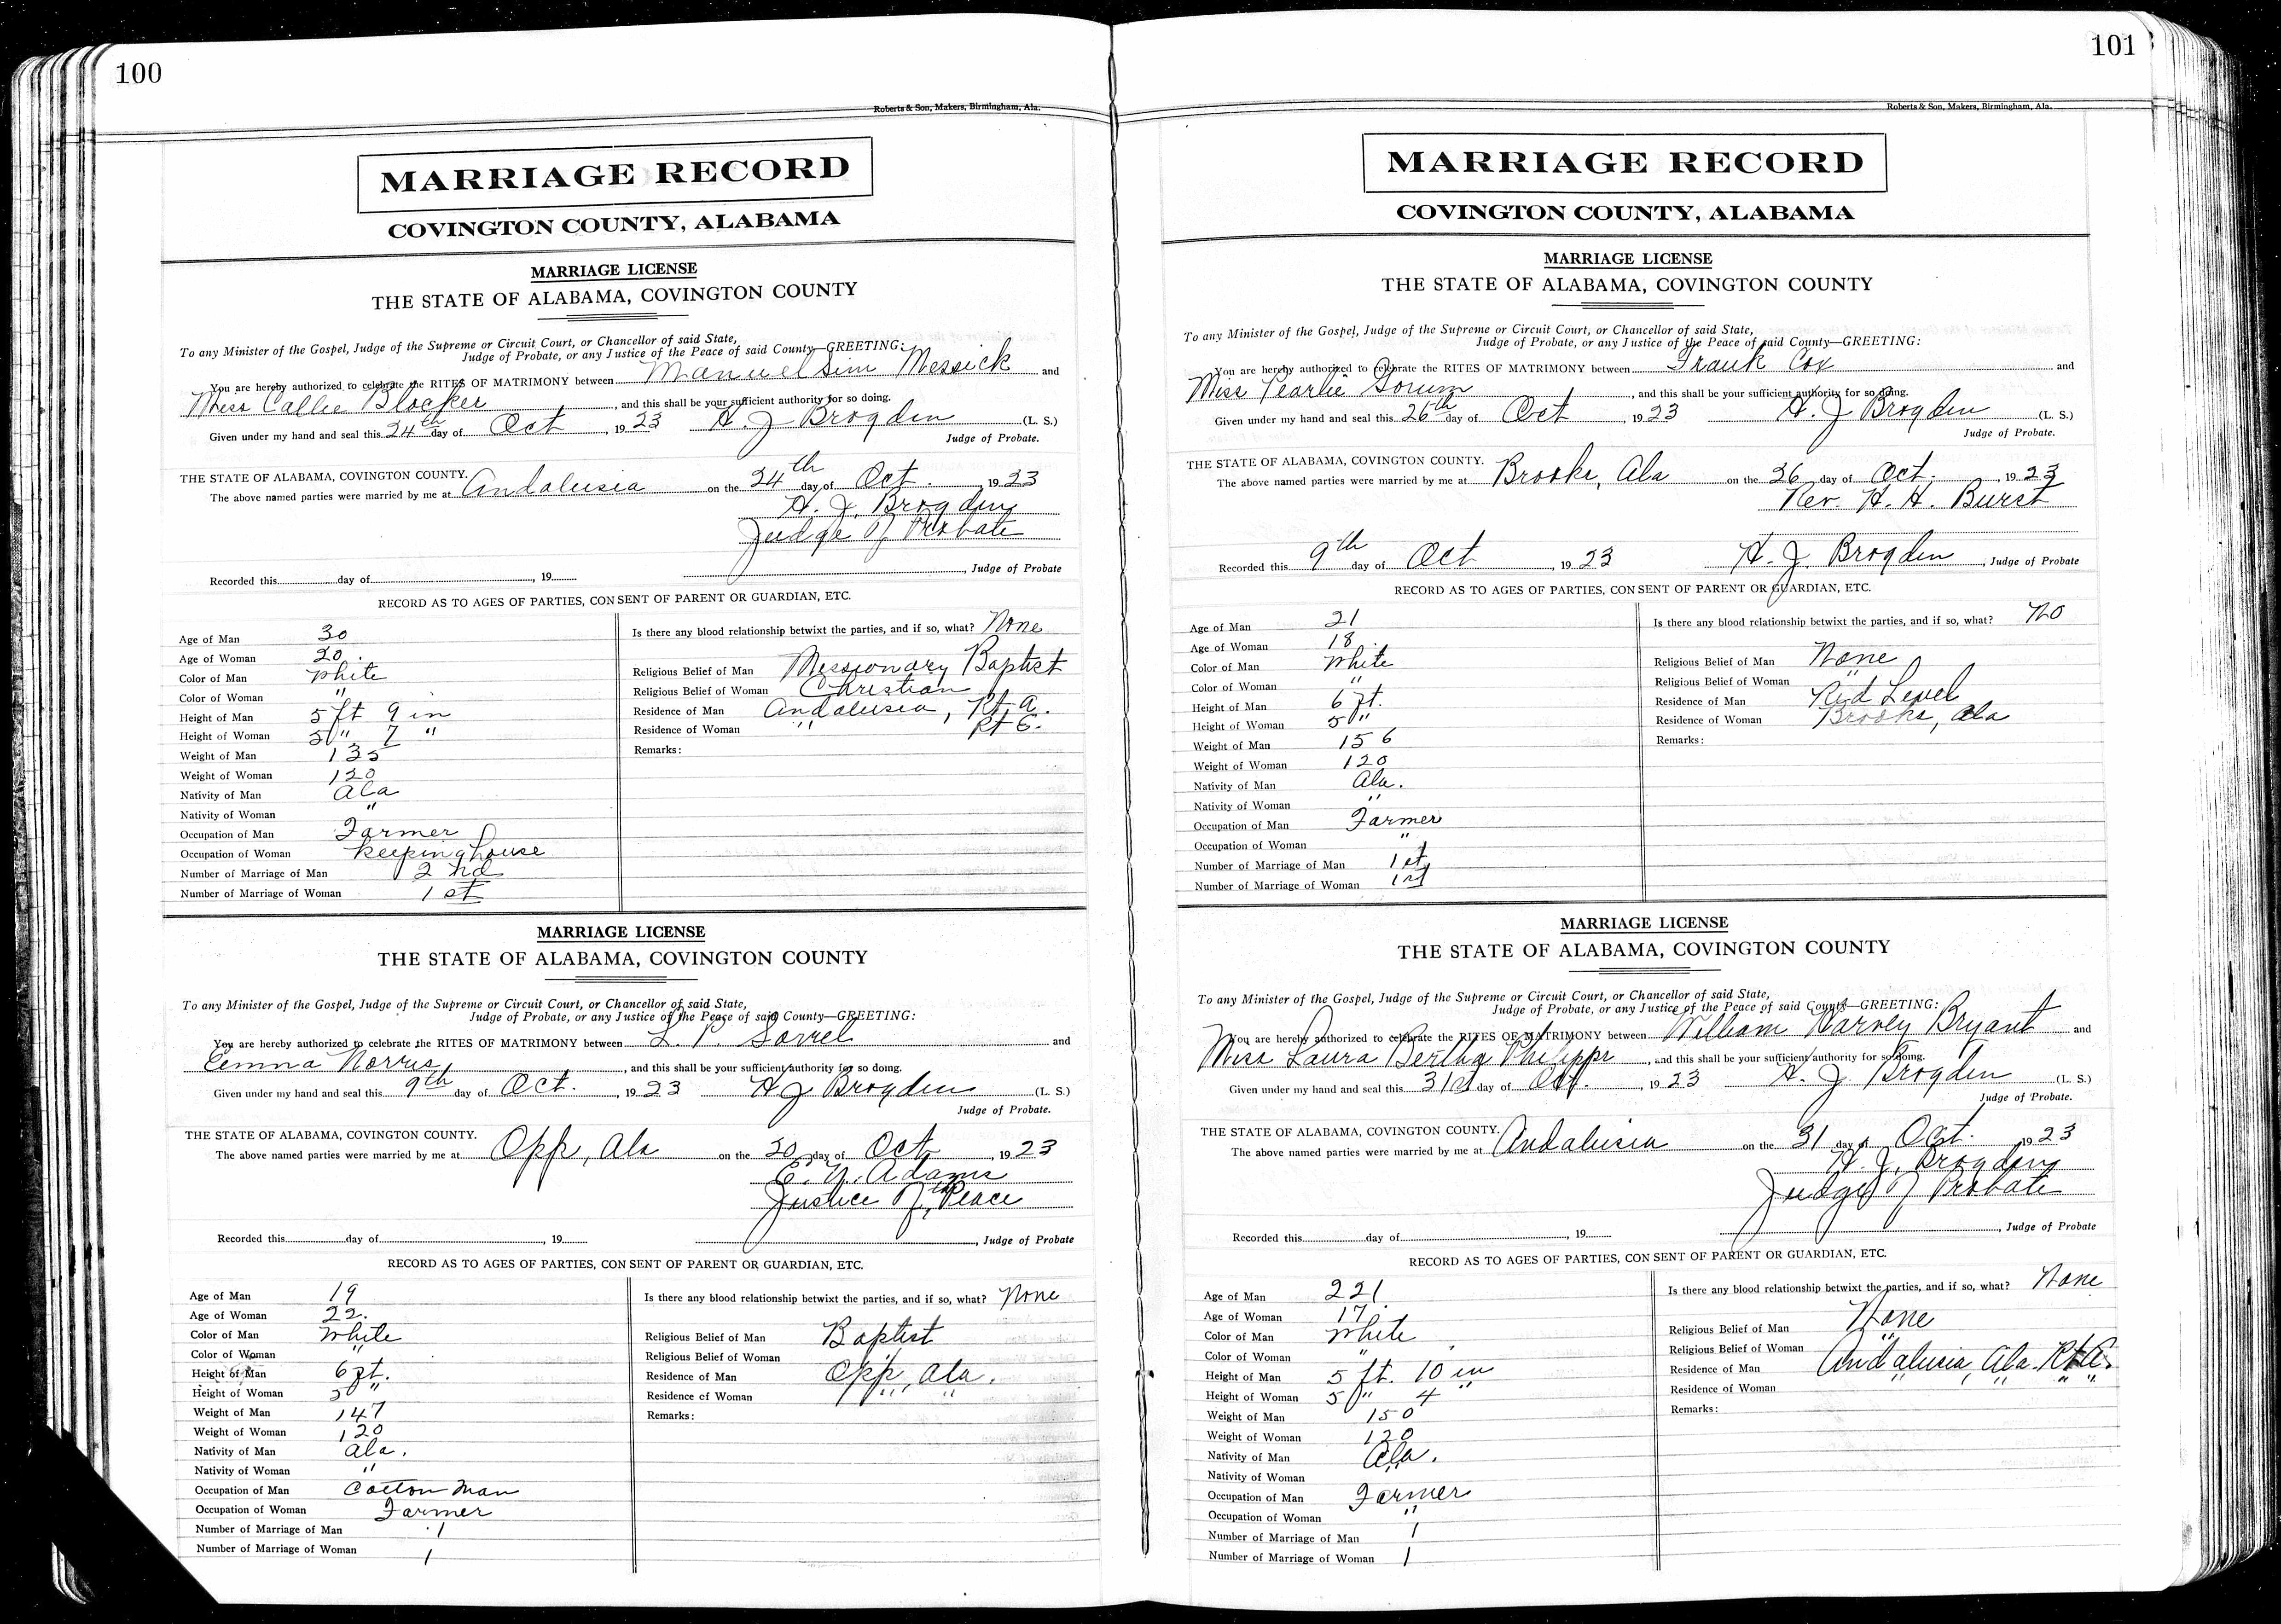 100
Roberts & Son, Makers, Birmingham, Ala.
MARRIAGE RECORD
COVINGTON COUNTY, ALABAMA
MARRIAGE LICENSE
THE STATE OF ALABAMA, COVINGTON COUNTY
To any Minister of the Gospel, Judge of the Supreme or Circuit Court, or Chancellor of said State,
Judge of Probate, or any Justice of the Peace of said County—GREETING:
You are hereby authorized to celebrate the RITES OF MATRIMONY between Manuel Sim Messick and
Miss Callie Blocker, and this shall be your sufficient authority for so doing.
Given under my hand and seal this 24th day of Oct, 1923 H. J Brogden (L. S.)
Judge of Probate.
THE STATE OF ALABAMA, COVINGTON COUNTY.
The above named parties were married by me at Andalusia on the 24th day of Oct. 1923
H. J. Brogden
Judge of Probate
Recorded this day of , 19 , Judge of Probate
RECORD AS TO AGES OF PARTIES, CONSENT OF PARENT OR GUARDIAN, ETC.
Age of Man 30
Age of Woman 20.
Color of Man White
Color of Woman "
Height of Man 5 ft 9 in
Height of Woman 5 " 7 "
Weight of Man 135
Weight of Woman 120
Nativity of Man Ala
Nativity of Woman "
Occupation of Man Farmer
Occupation of Woman Keeping house
Number of Marriage of Man 2nd
Number of Marriage of Woman 1st
Is there any blood relationship betwixt the parties, and if so, what? None
Religious Belief of Man Messionary Baptist
Religious Belief of Woman Christian
Residence of Man Andalusia, Rt. A.
Residence of Woman " Rt
Remarks:
MARRIAGE LICENSE
THE STATE OF ALABAMA, COVINGTON COUNTY
To any Minister of the Gospel, Judge of the Supreme or Circuit Court, or Chancellor of said State,
Judge of Probate, or any Justice of the Peace of said County—GREETING:
You are hereby authorized to celebrate the RITES OF MATRIMONY between L. P. Sorrel and
Emma Norris, and this shall be your sufficient authority for so doing.
Given under my hand and seal this 9th day of Oct., 1923 H J Brogden (L. S.)
Judge of Probate.
THE STATE OF ALABAMA, COVINGTON COUNTY.
The above named parties were married by me at Opp, Ala on the 20 day of Oct, 1923
E. N. Adams
Justice of the Peace
Recorded this day of , 19 , Judge of Probate
RECORD AS TO AGES OF PARTIES, CONSENT OF PARENT OR GUARDIAN, ETC.
Age of Man 19
Age of Woman 22.
Color of Man White
Color of Woman "
Height of Man 6 ft.
Height of Woman 5 "
Weight of Man 147
Weight of Woman 120
Nativity of Man Ala.
Nativity of Woman "
Occupation of Man Cotton Man
Occupation of Woman Farmer
Number of Marriage of Man 1
Number of Marriage of Woman 1
Is there any blood relationship betwixt the parties, and if so, what? None
Religious Belief of Man Baptist
Religious Belief of Woman "
Residence of Man Opp, Ala.
Residence of Woman " "
Remarks:
101
Roberts & Son, Makers, Birmingham, Ala.
MARRIAGE RECORD
COVINGTON COUNTY, ALABAMA
MARRIAGE LICENSE
THE STATE OF ALABAMA, COVINGTON COUNTY
To any Minister of the Gospel, Judge of the Supreme or Circuit Court, or Chancellor of said State,
Judge of Probate, or any Justice of the Peace of said County—GREETING:
You are hereby authorized to celebrate the RITES OF MATRIMONY between Frank Cox and
Miss Pearlie Gorum, and this shall be your sufficient authority for so doing.
Given under my hand and seal this 26th day of Oct, 1923 H. J Brogden (L. S.)
Judge of Probate.
THE STATE OF ALABAMA, COVINGTON COUNTY.
The above named parties were married by me at Brooks, Ala on the 26 day of Oct., 1923
Rev. H. H. Burst
Recorded this 9th day of Oct, 1923 H. J. Brogden, Judge of Probate
RECORD AS TO AGES OF PARTIES, CONSENT OF PARENT OR GUARDIAN, ETC.
Age of Man 21
Age of Woman 18.
Color of Man White
Color of Woman "
Height of Man 6 ft.
Height of Woman 5 "
Weight of Man 156
Weight of Woman 120
Nativity of Man Ala.
Nativity of Woman "
Occupation of Man Farmer
Occupation of Woman "
Number of Marriage of Man 1st
Number of Marriage of Woman 1st
Is there any blood relationship betwixt the parties, and if so, what? No
Religious Belief of Man None
Religious Belief of Woman "
Residence of Man Red Level
Residence of Woman Brooks, Ala
Remarks:
MARRIAGE LICENSE
THE STATE OF ALABAMA, COVINGTON COUNTY
To any Minister of the Gospel, Judge of the Supreme or Circuit Court, or Chancellor of said State,
Judge of Probate, or any Justice of the Peace of said County—GREETING:
You are hereby authorized to celebrate the RITES OF MATRIMONY between William Harvey Bryant and
Miss Laura Bertha Philipps, and this shall be your sufficient authority for so doing.
Given under my hand and seal this 31st day of Oct., 1923 H. J. Brogden (L. S.)
Judge of Probate.
THE STATE OF ALABAMA, COVINGTON COUNTY.
The above named parties were married by me at Andalusia on the 31 day of Oct., 1923
H. J. Brogden
Judge of Probate
Recorded this day of , 19 , Judge of Probate
RECORD AS TO AGES OF PARTIES, CONSENT OF PARENT OR GUARDIAN, ETC.
Age of Man 221
Age of Woman 17.
Color of Man White
Color of Woman "
Height of Man 5 ft. 10 in
Height of Woman 5 " 4 "
Weight of Man 150
Weight of Woman 120
Nativity of Man Ala.
Nativity of Woman "
Occupation of Man Farmer
Occupation of Woman "
Number of Marriage of Man 1
Number of Marriage of Woman 1
Is there any blood relationship betwixt the parties, and if so, what? None
Religious Belief of Man None
Religious Belief of Woman "
Residence of Man Andalusia, Ala. Rt
Residence of Woman " " " "
Remarks: